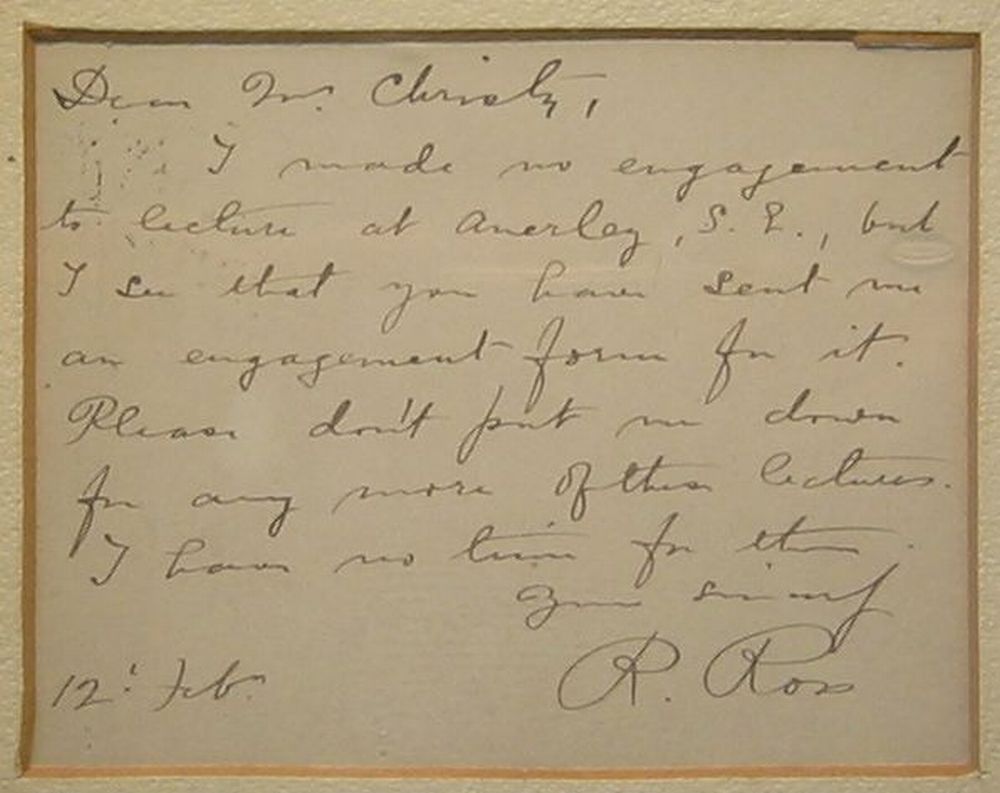 Dear Mr. Christy,
I made no engagement
to lecture at Anerley, S. E., but
I see that you have sent me
an engagement form for it.
Please don't put me down
for any more of these lectures.
I have no time for them.
Yours sincerely
R. Ross
12' Feb.